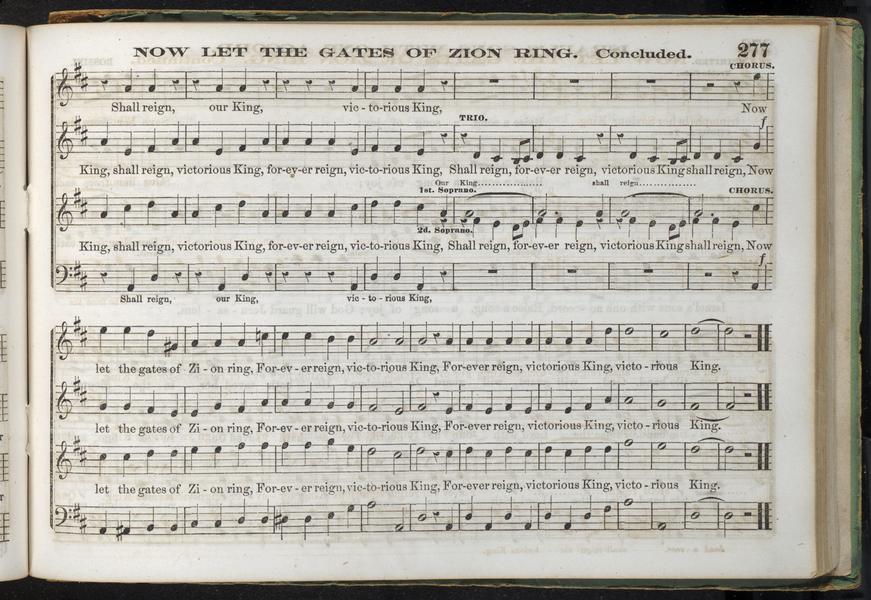 NOW LET THE GATES OF ZION RING. Concluded. 277
CHORUS.
Shall reign, our King, vic - to-rious King, Now
TRIO. f
King, shall reign, victorious King, for-ev-er reign, vic-to-rious King, Shall reign, for-ev-er reign, victorious King shall reign, Now
Our King.................. shall reign...............
1st. Soprano. CHORUS.
2d. Soprano.
King, shall reign, victorious King, for-ev-er reign, vic-to-rious King, Shall reign, for-ev-er reign, victorious King shall reign, Now
f
Shall reign, our King, vic - to - rious King,
let the gates of Zi - on ring, For-ev - er reign, vic-to-rious King, For-ever reign, victorious King, victo - rious King.
let the gates of Zi - on ring, For-ev - er reign, vic-to-rious King, For-ever reign, victorious King, victo - rious King.
let the gates of Zi - on ring, For-ev - er reign, vic-to-rious King, For-ever reign, victorious King, victo - rious King.